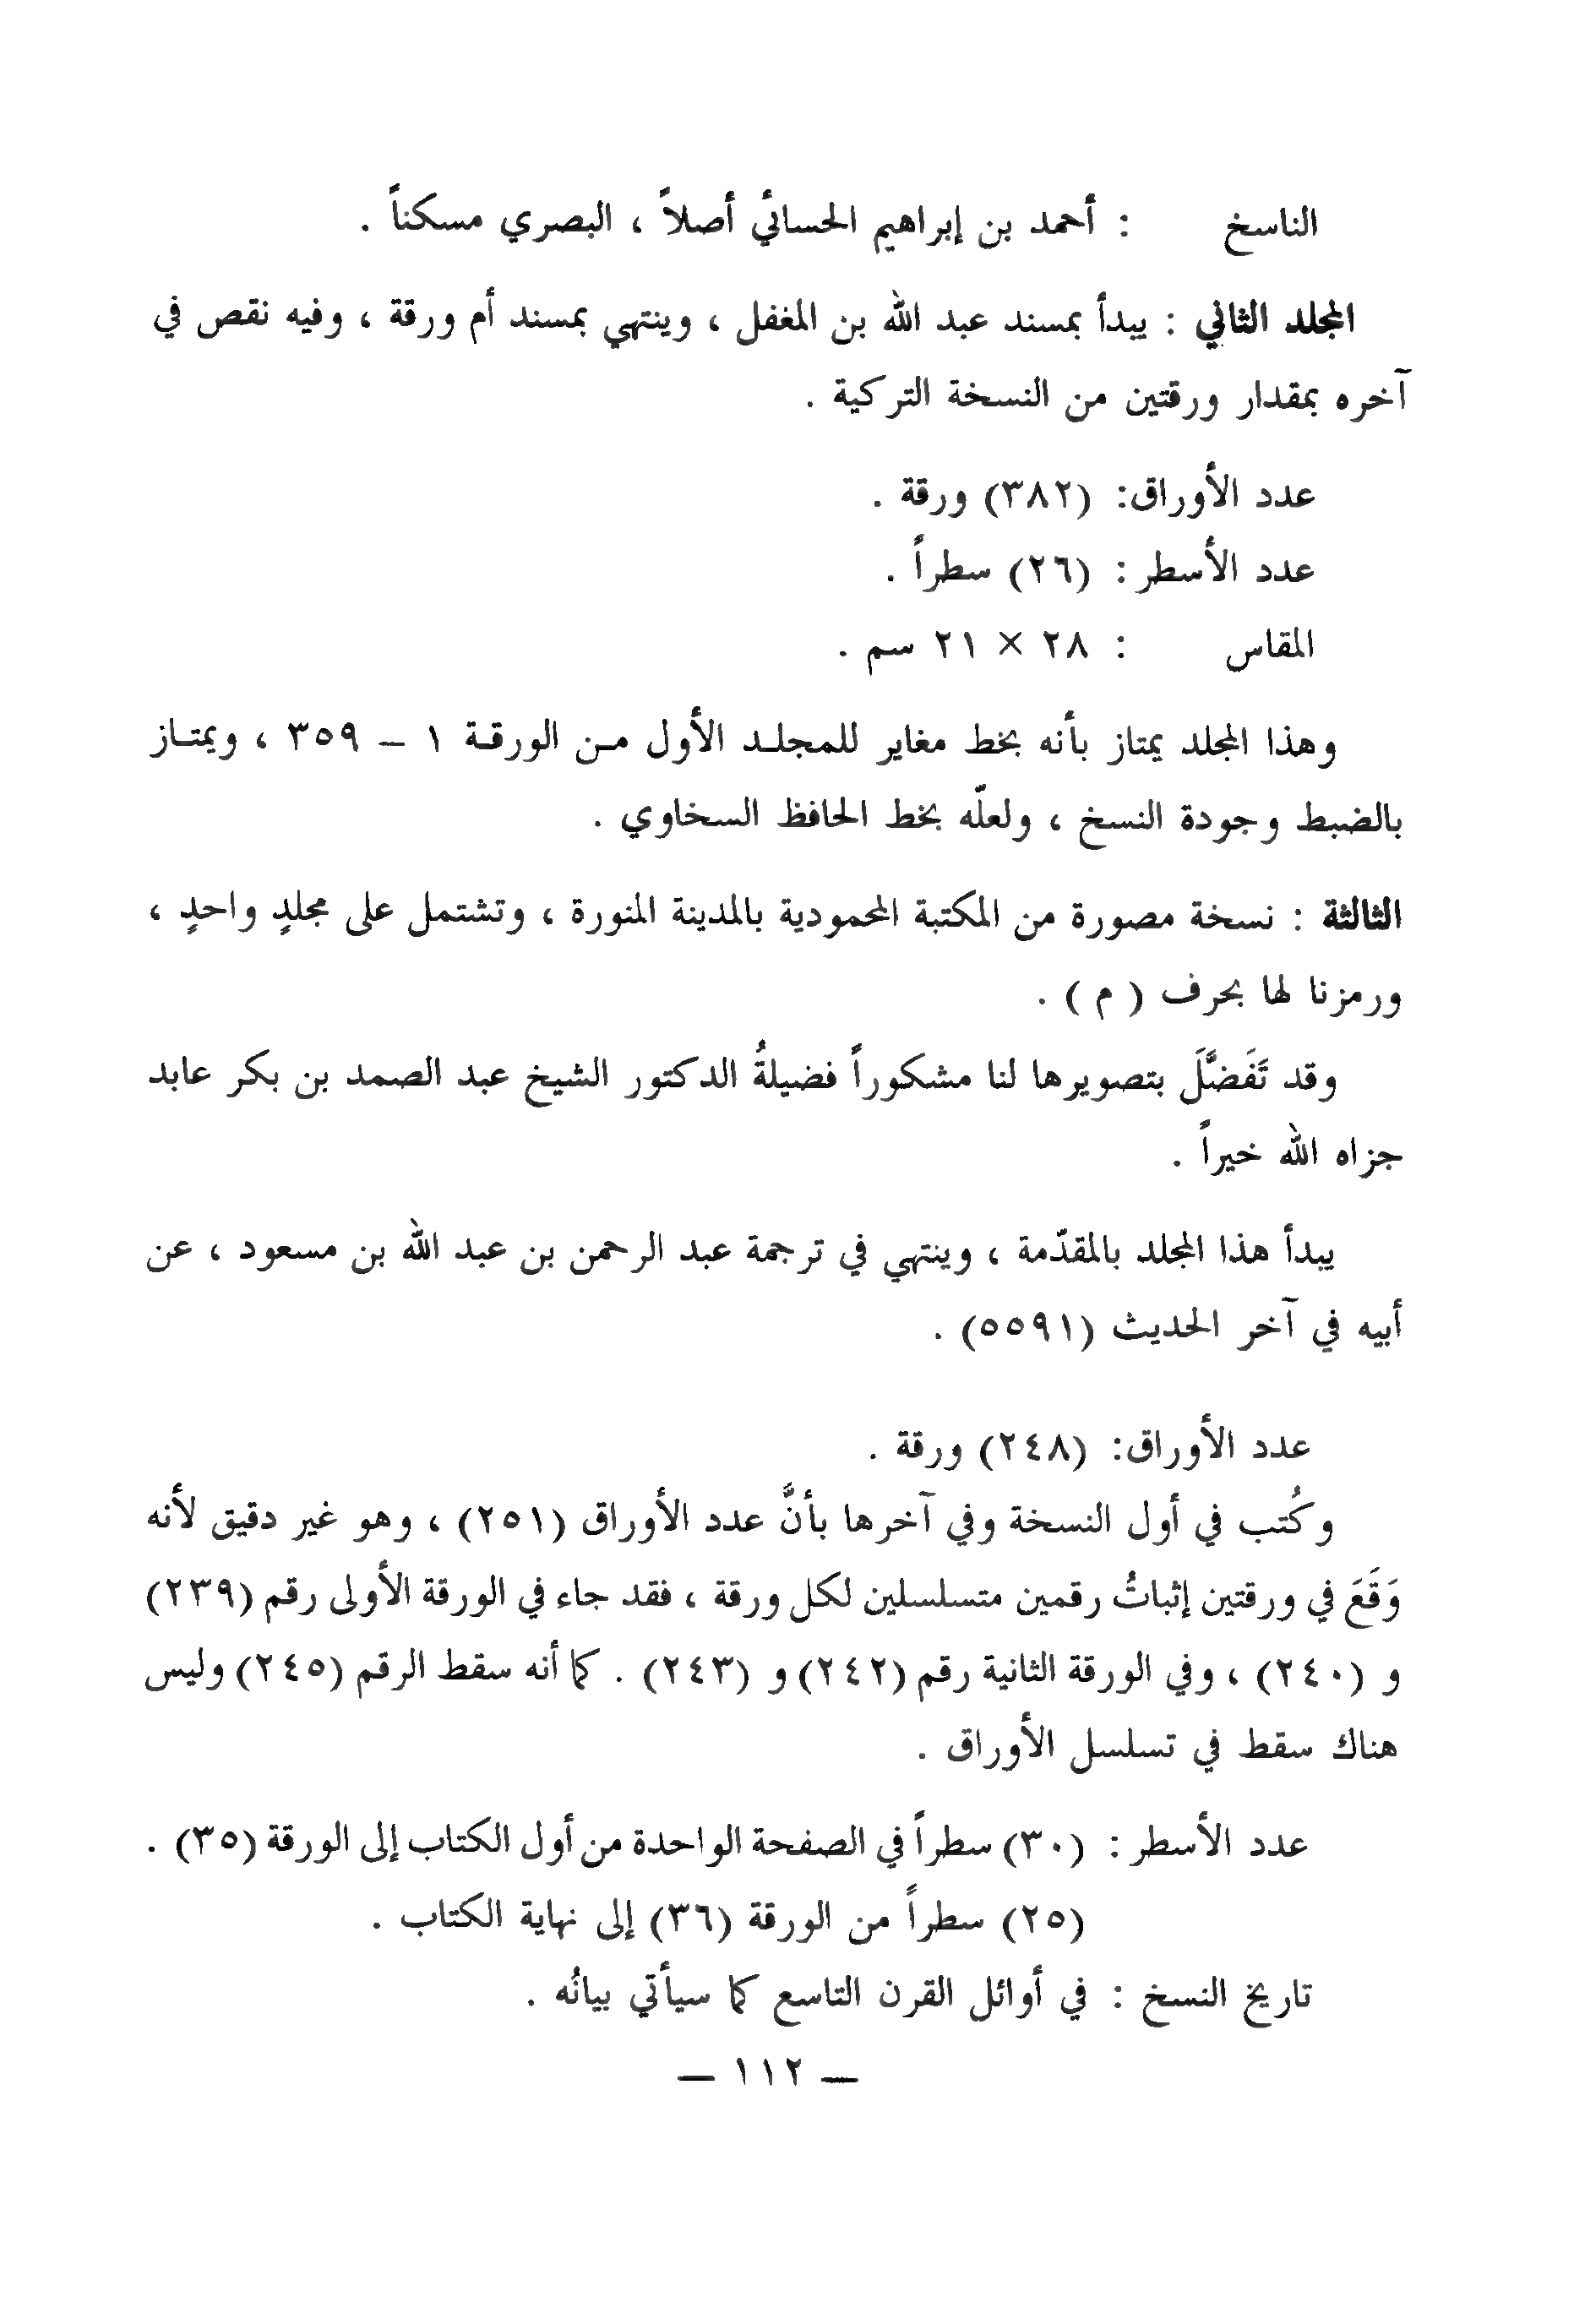 الناسخ : أحمد بن إبراهيم الحسائي أصلاً ، البصري مسكناً .
المجلد الثاني : يبدأ بمسند عبد الله بن المغفل ، وينتهي بمسند أم ورقة ، وفيه نقص في
آخره بمقدار ورقتين من النسخة التركية .
عدد الأوراق: (٣٨٢) ورقة .
عدد الأسطر : (٢٦) سطراً .
المقاس : ٢٨ × ٢١ سم .
وهذا المجلد يمتاز بأنه بخط مغاير للمجلـد الأول مـن الورقـة ١ – ٣٥٩ ، ويمتـاز
بالضبط وجودة النسخ ، ولعلّه بخط الحافظ السخاوي .
الثالثة : نسخة مصورة من المكتبة المحمودية بالمدينة المنورة ، وتشتمل على مجلدٍ واحدٍ ،
ورمزنا لها بحرف ( م ) .
وقد تَفَضَّلَ بتصويرها لنا مشكوراً فضيلةُ الدكتور الشيخ عبد الصمد بن بكر عابد
جزاه الله خيراً .
يبدأ هذا المجلد بالمقدّمة ، وينتهي في ترجمة عبد الرحمن بن عبد الله بن مسعود ، عن
أبيه في آخر الحديث (٥٥٩١) .
عدد الأوراق: (٢٤٨) ورقة .
وكُتب في أول النسخة وفي آخرها بأنَّ عدد الأوراق (٢٥١) ، وهو غير دقيق لأنه
وَقَعَ في ورقتين إثباتُ رقمين متسلسلين لكل ورقة ، فقد جاء في الورقة الأولى رقم (٢٣٩)
و (٢٤٠) ، وفي الورقة الثانية رقم (٢٤٢) و (٢٤٣) . كما أنه سقط الرقم (٢٤٥) وليس
هناك سقط في تسلسل الأوراق .
عدد الأسطر : (٣٠) سطراً في الصفحة الواحدة من أول الكتاب إلى الورقة (٣٥) .
(٢٥) سطراً من الورقة (٣٦) إلى نهاية الكتاب .
تاريخ النسخ : في أوائل القرن التاسع كما سيأتي بيانُه .
— ١١٢ —